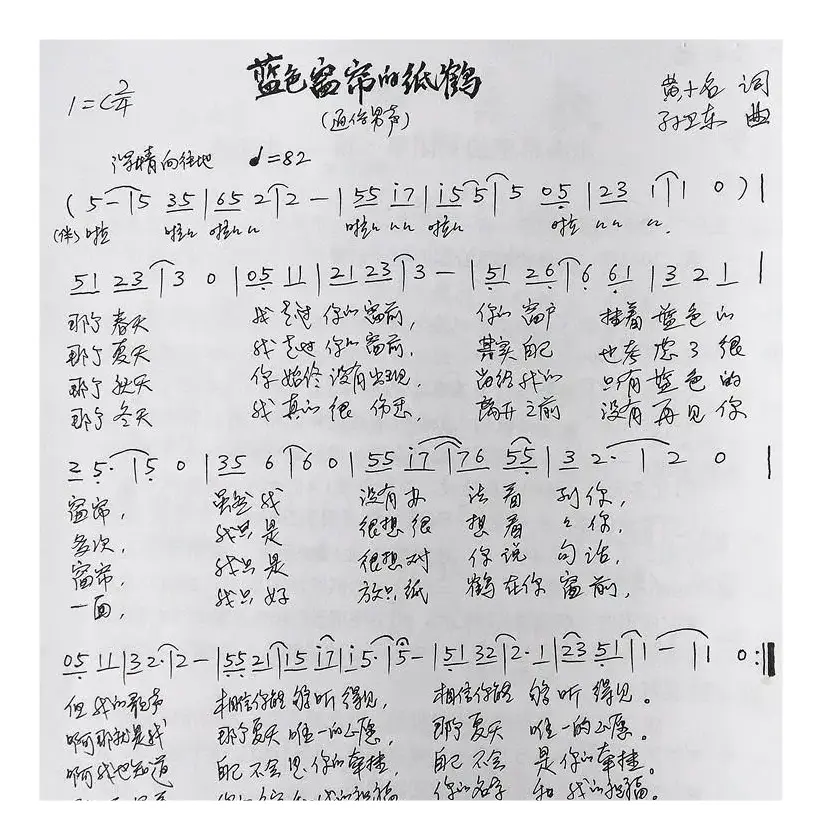 蓝色窗帘的纸鹤
(通俗男声)
1=C 2/4
黄十名 词
孙卫东 曲
深情向往地 ♩=82
( 5 - | 5 35 | 65 2 | 2 - | 55 i7 | i5 5 | 5 05 | 23 1 | 1 0 ) |
(伴) 啦 啦 啦 啦 啦 啦
51 23 | 3 0 | 05 11 | 21 23 | 3 - | 51 26 | 6 61 | 3 21 |
那个春天 我走过你的窗前, 你的窗户 挂着蓝色的
那个夏天 我走过你的窗前, 其实自己 也考虑了很
那个秋天 你始终没有出现, 留给我的 只有蓝色的
那个冬天 我真的很伤悲, 离开之前 没有再见你
2 5· | 5 0 | 35 6 | 6 0 | 55 i7 | 76 55 | 3 2· | 2 0 |
窗帘, 虽然我 没有办法看到你,
多次, 我只是 很想很想看々你,
窗帘, 我只是 很想对你说句话,
一面, 我只好 放只纸鹤在你窗前,
05 11 | 32· | 2 - | 55 21 | 15 i7 | i5· | 5 - | 51 32 | 2· 1 | 23 51 | 1 - | 1 0 :‖
但我的歌声 相信你能够听得见, 相信你能够听得见。
啊那就是我 那个夏天唯一的心愿, 那个夏天唯一的心愿。
啊我也知道 自己不会是你的牵挂, 自己不会是你的牵挂。
你的名字和我的祝福。